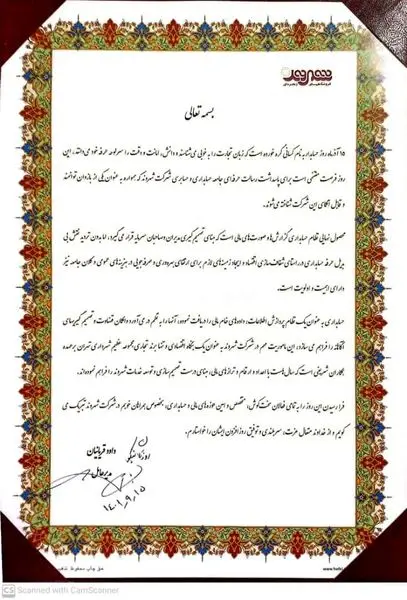 شهروند
فروشگاه‌های زنجیره‌ای
بسمه تعالی
۱۵ آذرماه روز حسابدار به نام کسانی گره خورده است که زبان تجارت را به خوبی می‌شناسند و دانش، امانت و دقت را سرلوحه حرفه خود می‌دانند، این
روز فرصت مغتنمی است برای پاسداشت رسالت حرفه‌ای جامعه حسابداری و حسابرسی شرکت شهروند که همواره به عنوان یکی از بازوان توانمند
و قابل اتکای این شرکت شناخته می‌شوند.
محصول نهائی نظام حسابداری گزارش‌ها و صورت‌های مالی است که مبنای تصمیم گیری مدیران و صاحبان سرمایه قرار می‌گیرد، اما بدون تردید نقش بی
بدیل حرفه حسابداری در راستای شفاف سازی اقتصاد و ایجاد زمینه‌های لازم برای ارتقای بهره‌وری و صرفه جویی در هزینه‌های عمومی و کلان جامعه نیز
دارای اهمیت و اولویت است.
حسابداری به عنوان یک نظام پردازش اطلاعات، داده‌های خام مالی را دریافت نموده، آنها را به نظم در می‌آورد و امکان قضاوت و تصمیم گیری‌های
آگاهانه را فراهم می سازد، این ماموریت مهم در شرکت شهروند به عنوان یک بنگاه اقتصادی و تنها برند تجاری مجموعه عظیم شهرداری تهران بر عهده
همکاران شریفی است که سال‌هاست با اعداد و ارقام و ترازهای مالی، مبنای درست تصمیم سازی و توسعه خدمات شهروند را فراهم نموده‌اند.
فرا رسیدن این روز را به تمامی فعالان سخت کوش، متخصص و امین حوزه‌های مالی و حسابداری، بخصوص همراهان خوبم در شرکت شهروند تبریک می
گویم و از خداوند متعال عزت، سربلندی و توفیق روز افزون ایشان را خواستارم.
داود قربانیان
مدیرعامل
۱۴۰۱,۹,۱۵
حق چاپ محفوظ
CS Scanned with CamScanner